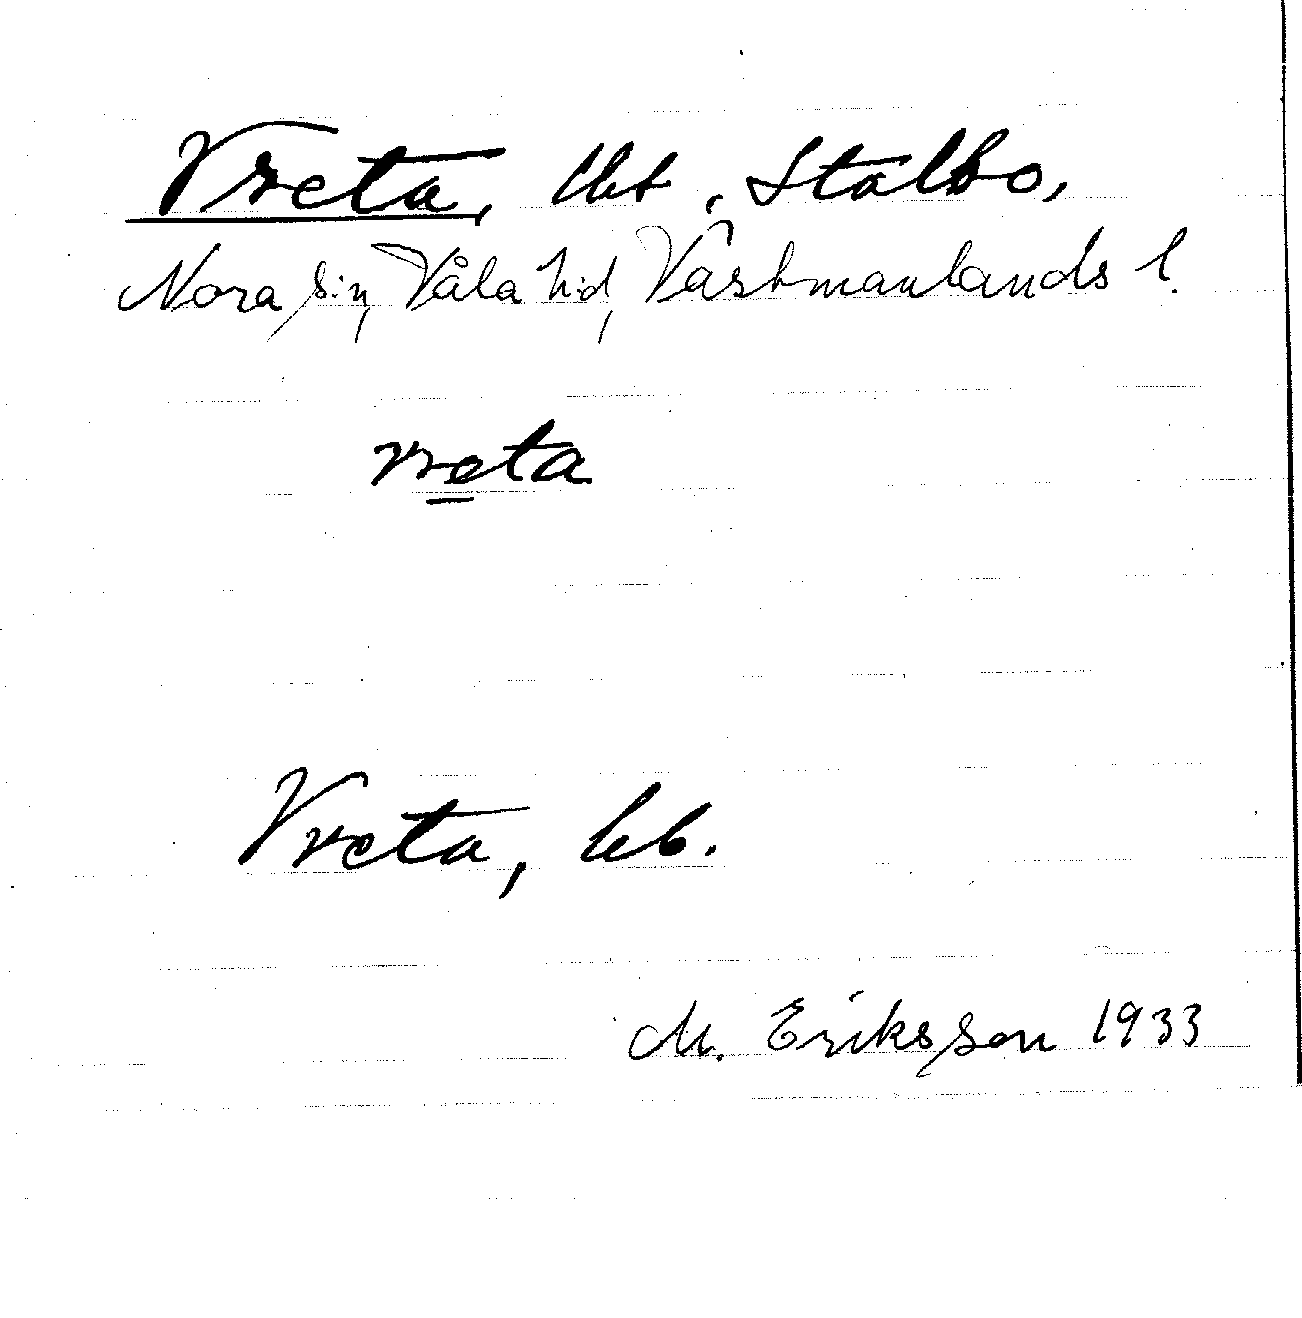 Vreta, lht, Stalbo,
Nora s:n, Våla h:d, Västmanlands l.
vreta
Vreta, bb.
M. Eriksson 1933